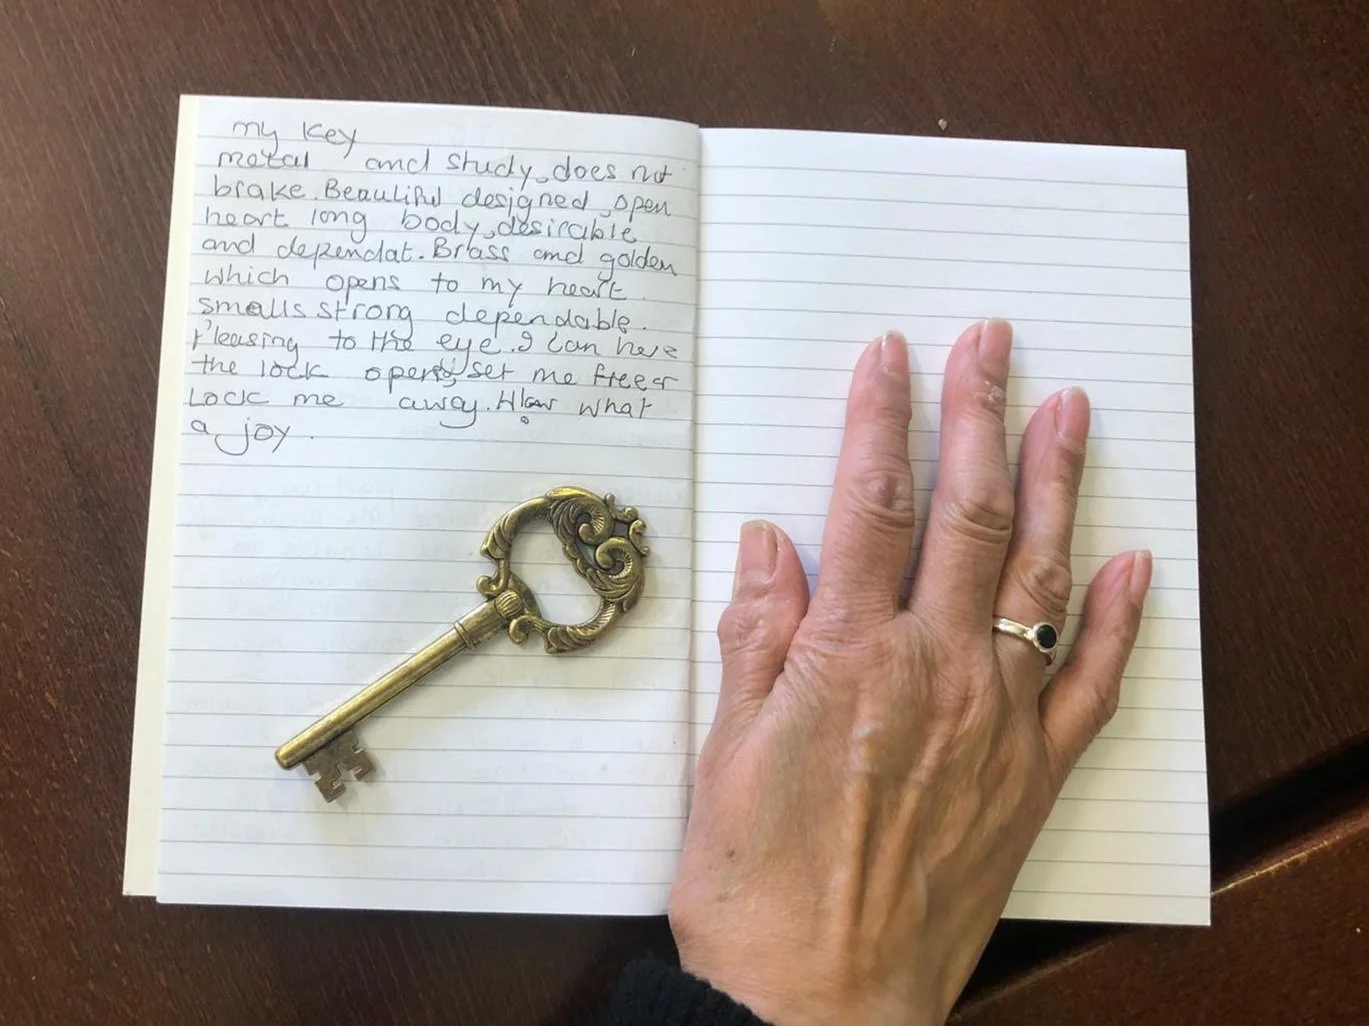 my key
metal and study, does not
brake. Beautiful designed, open
heart long body, desirable
and dependat. Brass and golden
which opens to my heart.
smalls strong dependable.
Pleasing to the eye. I can here
the lock opens, set me free or
Lock me away. How what
a joy.